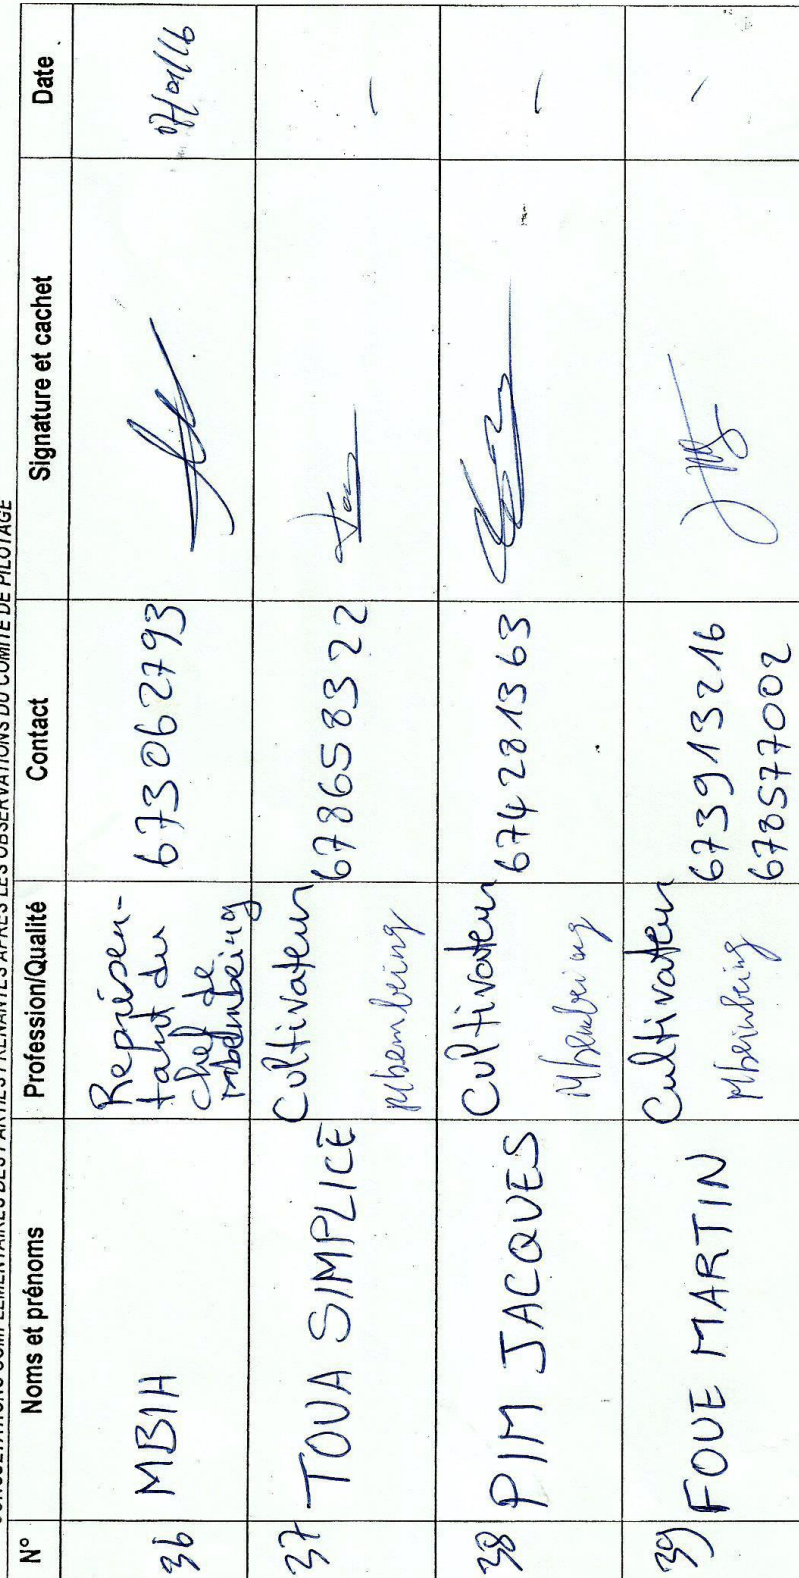 CONSULTATIONS COMPLEMENTAIRES DES PARTIES PRENANTES APRES LES OBSERVATIONS DU COMITE DE PILOTAGE
N° Noms et prénoms Profession/Qualité Contact Signature et cachet Date
36 MBIH Représen-
tant du
chef de
mbembeing 673062793 07/01/16
37 TOUA SIMPLICE Cultivateur
Mbembeing 678658322 -
38 PIM JACQUES Cultivateur
Mbembeing 674281363 -
39 FOUE MARTIN Cultivateur
Mbembeing 673913216
678577002 -